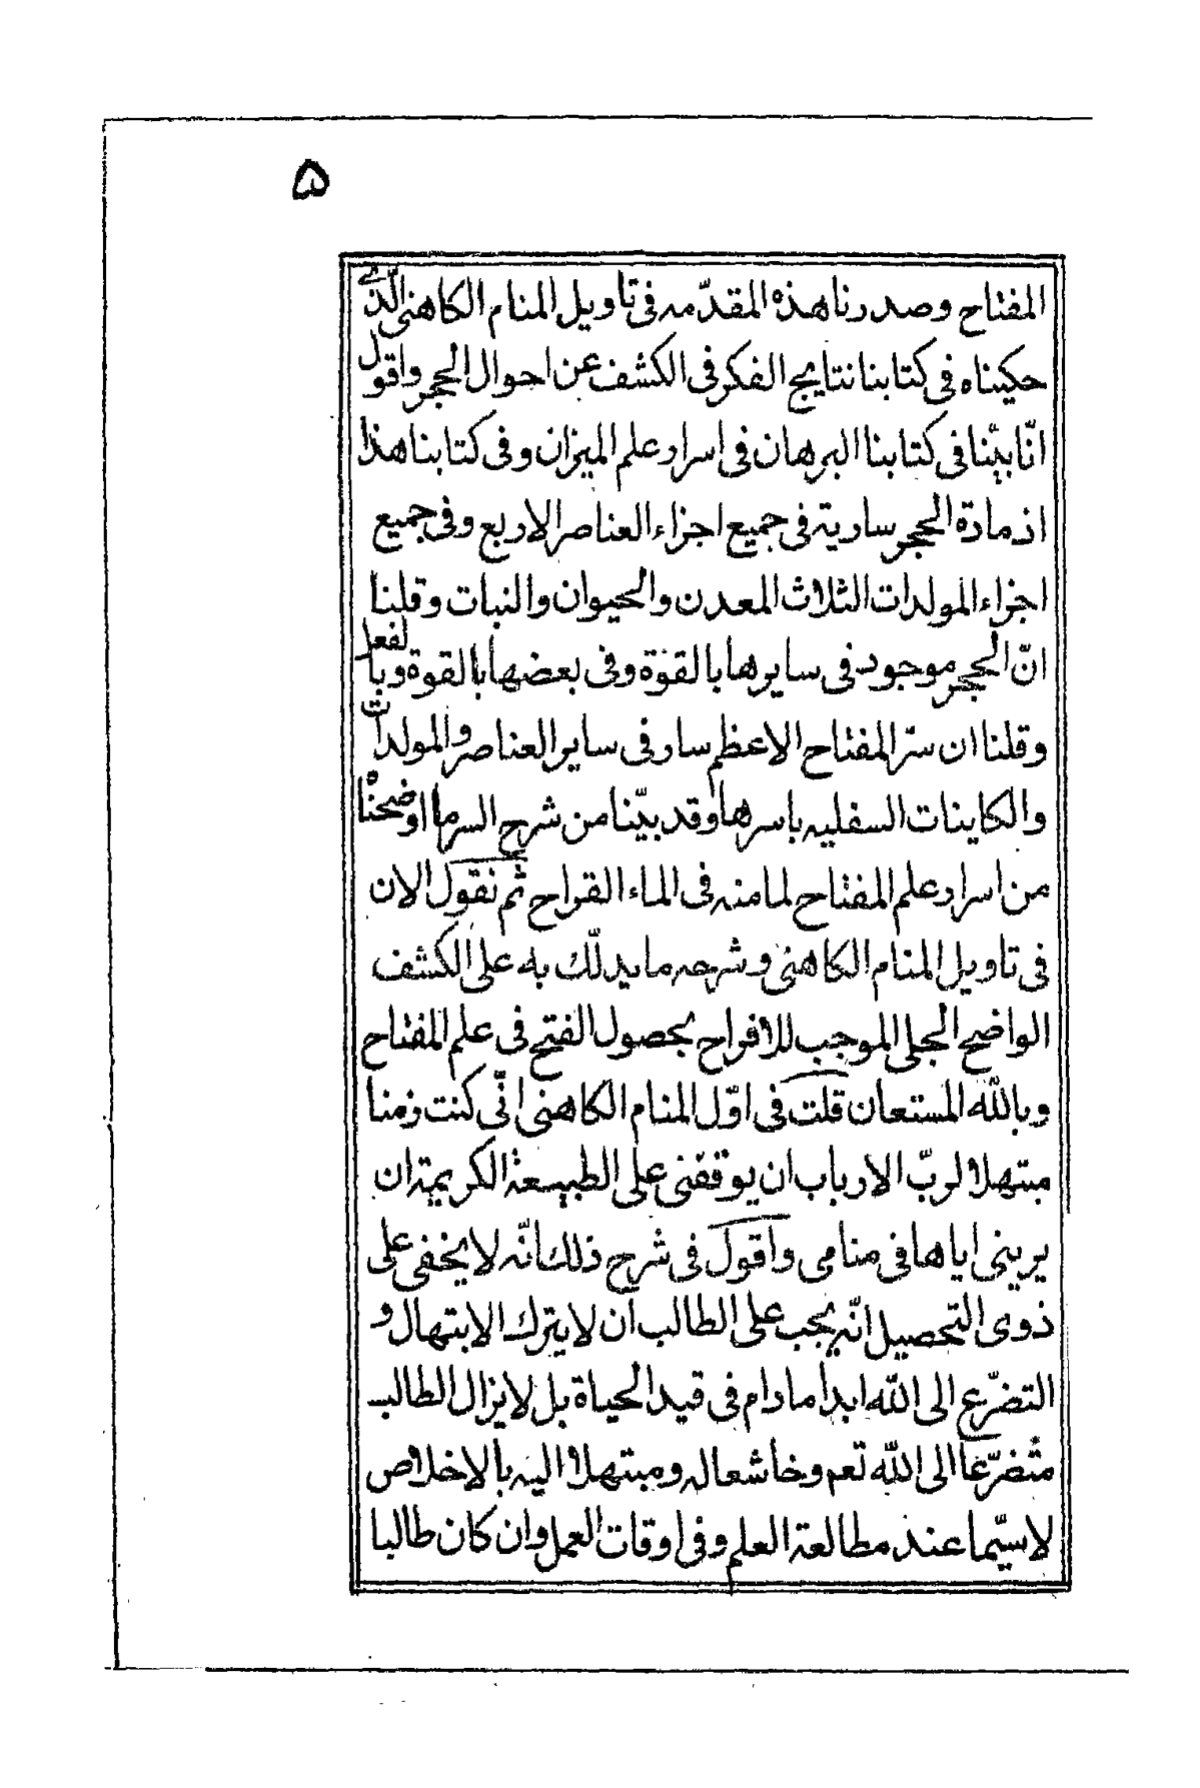 ۵
المفتاح وصدرنا هذه المقدّمه فی تاویل المنام الکاهنی الّذی
حکیناه فی کتابنا نتایج الفکر فی الکشف عن احوال الحجر واقول
انّا بیّنا فی کتابنا البرهان فی اسرار علم المیزان وفی کتابنا هذا
اذ مادّة الحجر ساریة فی جمیع اجزاء العناصر الاربع وفی جمیع
اجزاء المولدات الثلاث المعدن والحیوان والنبات وقلنا
انّ الحجر موجود فی سایرها بالقوّة وفی بعضها بالقوة وبالفعل
وقلنا ان سرّ المفتاح الاعظم سار فی سایر العناصر والمولدات
والکاینات السفلیه باسرها وقد بیّنا من شرح السر ما اوضحناه
من اسرار علم المفتاح لما منه فی الماء القراح ثم نقول الان
فی تاویل المنام الکاهنی وشرحه ما یدلّک به علی الکشف
الواضح الجلی الموجب للافراح بحصول الفتح فی علم المفتاح
وبالله المستعان قلت فی اوّل المنام الکاهنی انّی کنت زمنا
مبتهلا لربّ الارباب ان یوقفنی علی الطبیعة الکریمة ان
یرینی ایاها فی منامی واقول فی شرح ذلک انّه لا یخفی علی
ذوی التحصیل انّه یجب علی الطالب ان لا یترک الابتهال و
التضرّع الی الله ابدا ما دام فی قید الحیاة بل لا یزال الطالب
متضرّعا الی الله تعم وخاشعا له ومبتهلا الیه بالاخلاص
لاسیّما عند مطالعة العلم وفی اوقات العمل وان کان طالبا